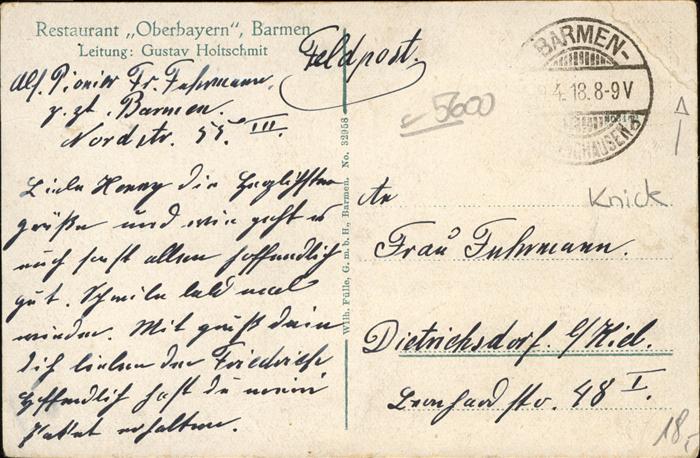 Restaurant „Oberbayern“, Barmen
Leitung: Gustav Holtschmit
Feldpost.
Abs. Pionier Fr. Fuhrmann
z. zt. Barmen.
Nordstr. 55. III.
Liebe Henny die herzlichsten
grüße und wie geht es
euch sonst allen hoffendlich
gut. Schreibe bald mal
wieder. Mit gruß dein
dich liebender Friedrich
Hoffendlich hast du mein
Paket erhalten.
Wilh. Fülle, G. m. b. H., Barmen. No. 32958
5600
BARMEN-
4.18.8-9V
HAUSEN
Knick
An
Frau Fuhrmann.
Dietrichsdorf b/Kiel.
str. 48 I.
18,-